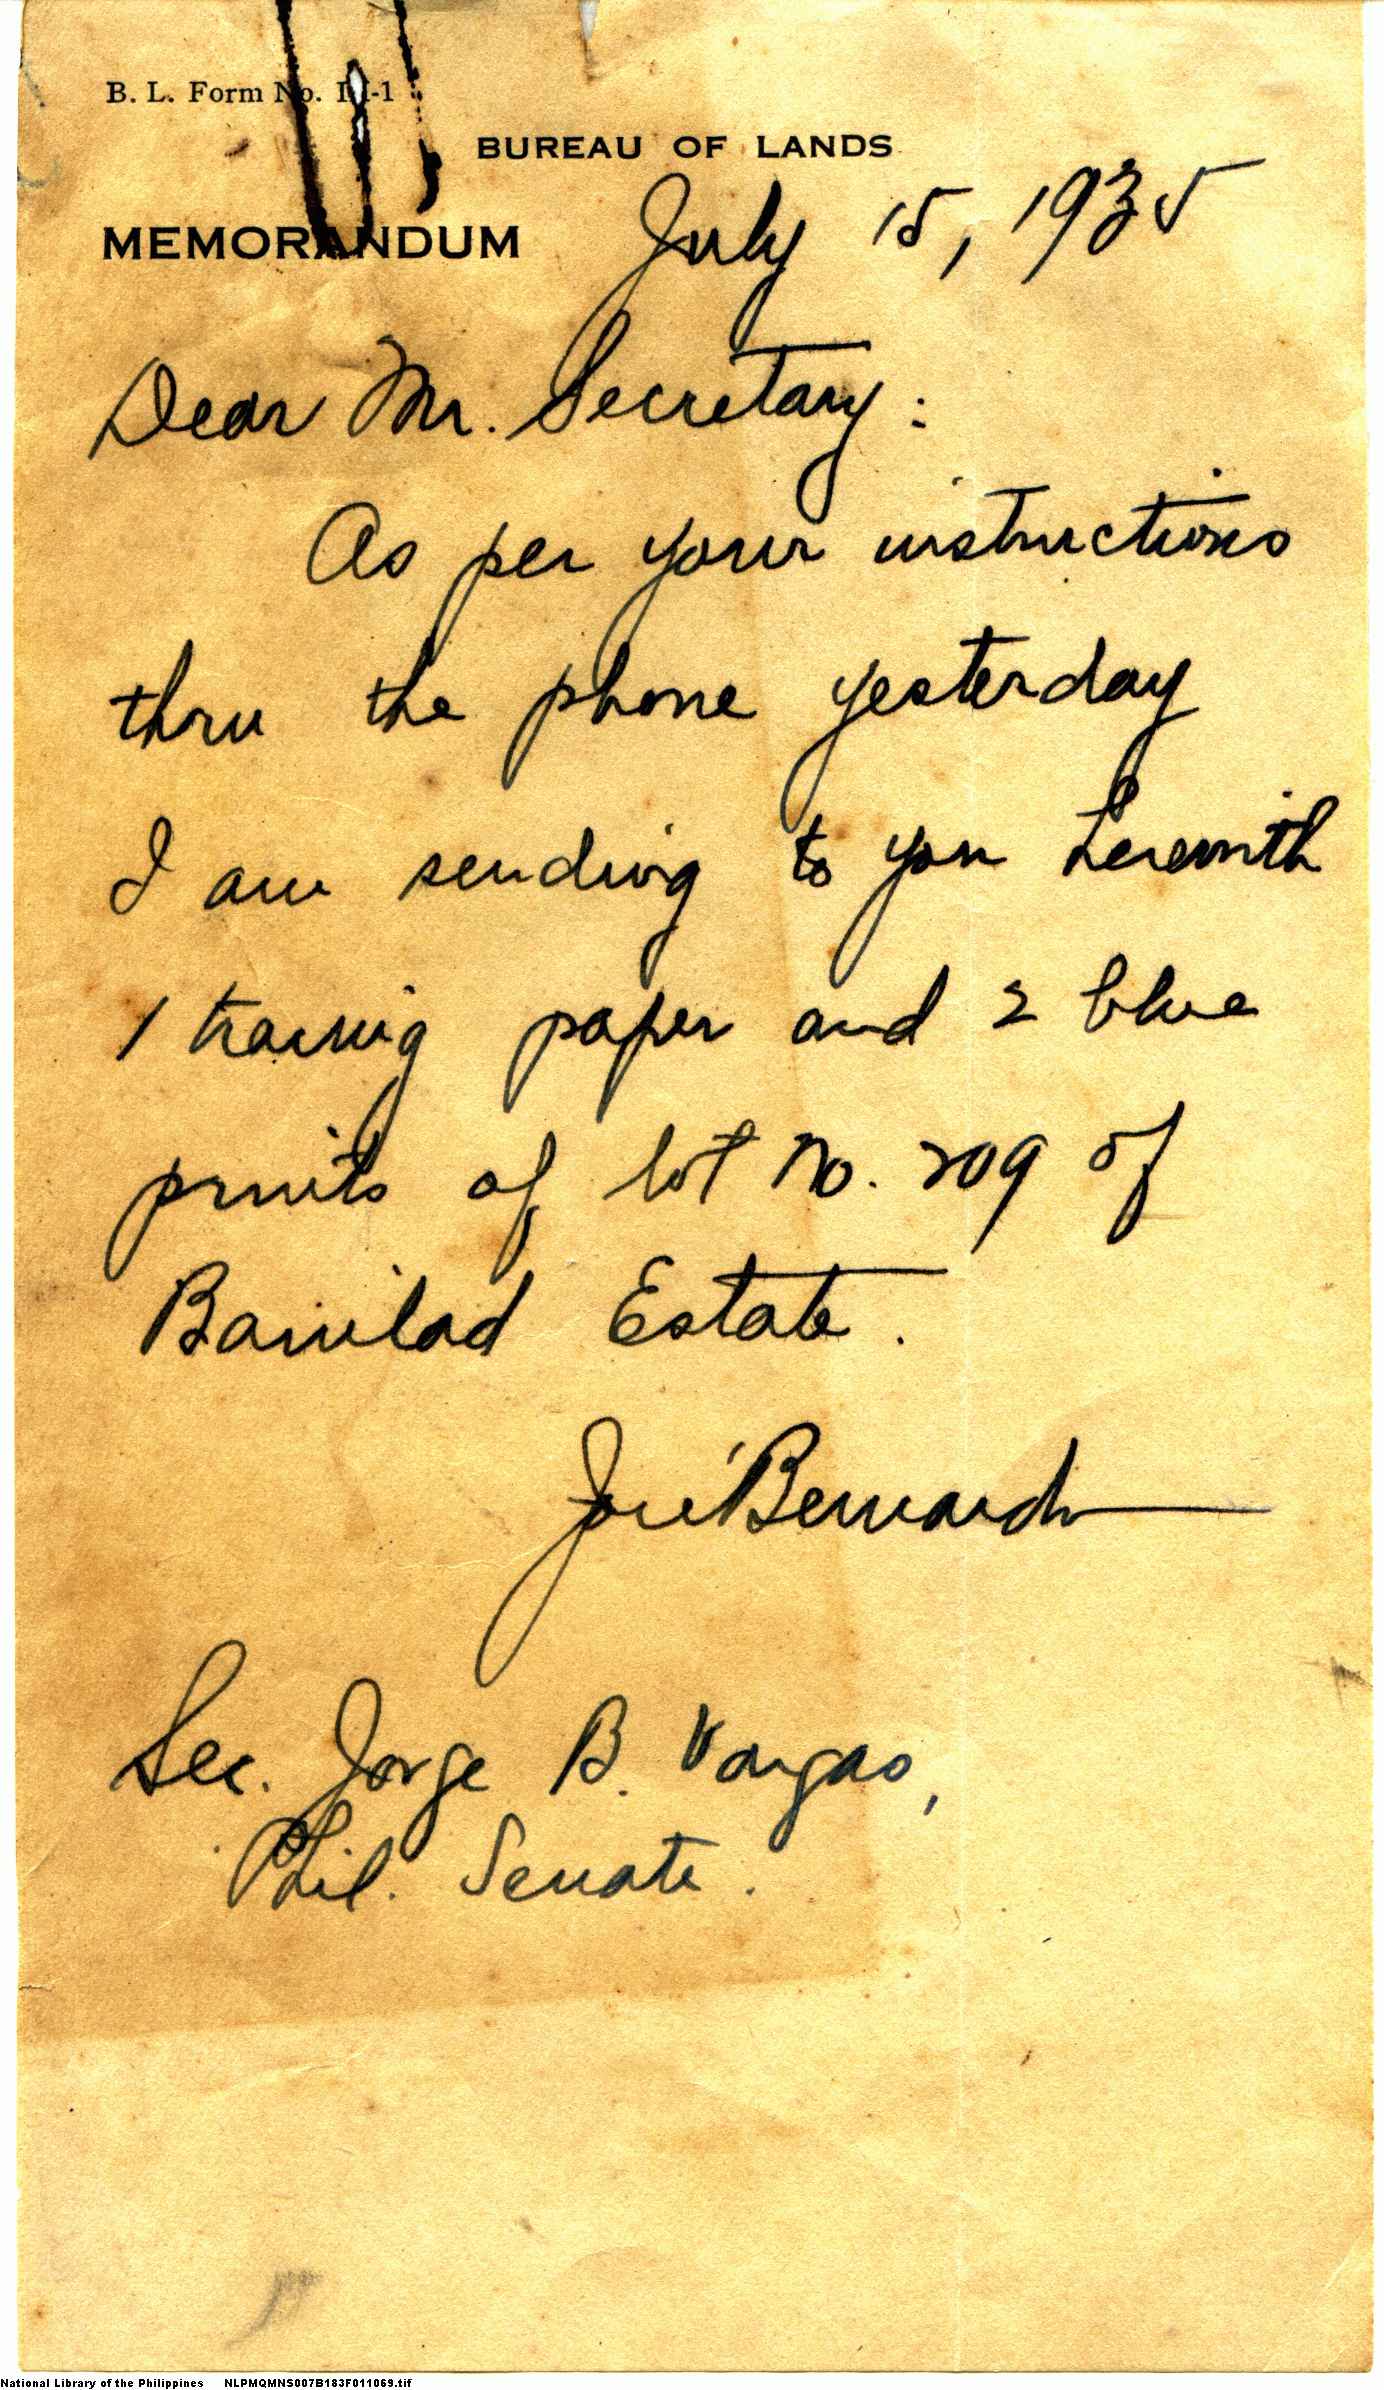 B. L. Form No. III-1
BUREAU OF LANDS
MEMORANDUM
July 15, 1935
Dear Mr. Secretary:
As per your instructions
thru the phone yesterday
I am sending to you herewith
1 tracing paper and 2 blue
prints of lot No. 209 of
Banilad Estate.
José Bernardo
Sec. Jorge B. Vargas,
Phil. Senate.
National Library of the Philippines NLPMQMNS007B183F011069.tif